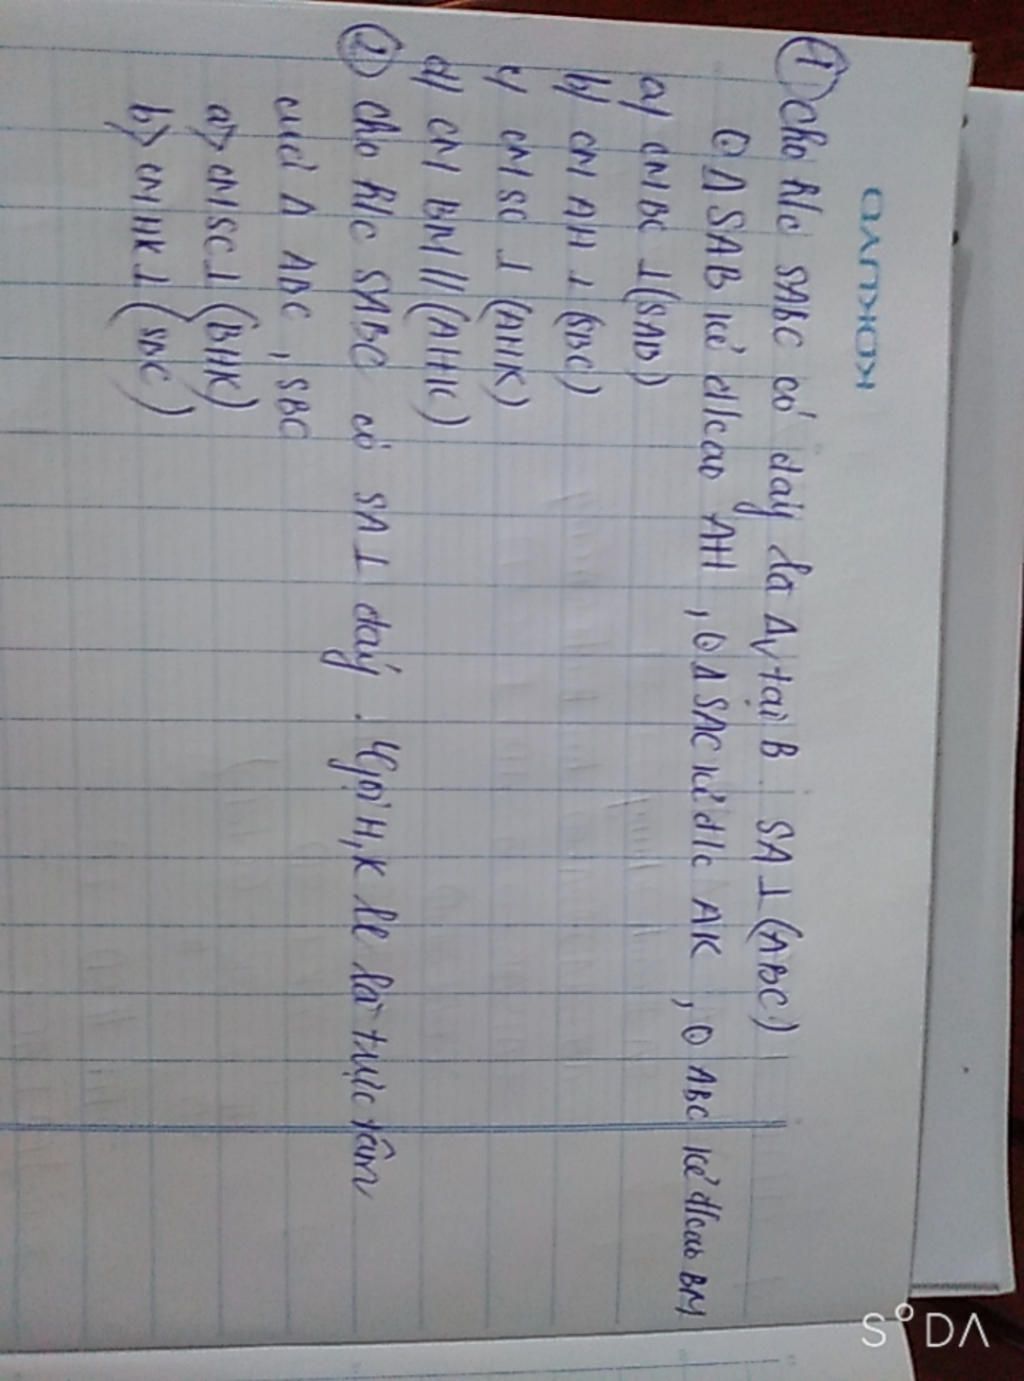 ① Cho h/c SABC có đáy là Δv tại B. SA ⊥ (ABC)
⊙ Δ SAB kẻ đ/cao AH, ⊙ Δ SAC kẻ đ/c AK, ⊙ ABC kẻ đ/cao BM
a) CM BC ⊥ (SAB)
b) CM AH ⊥ (SBC)
c) CM SC ⊥ (AHK)
d) CM BM // (AHK)
② Cho h/c SABC có SA ⊥ đáy. Gọi H, K lll là trực tâm
của Δ ABC, SBC
a) CM SC ⊥ (BHK)
b) CM HK ⊥ (SBC)
S°DA